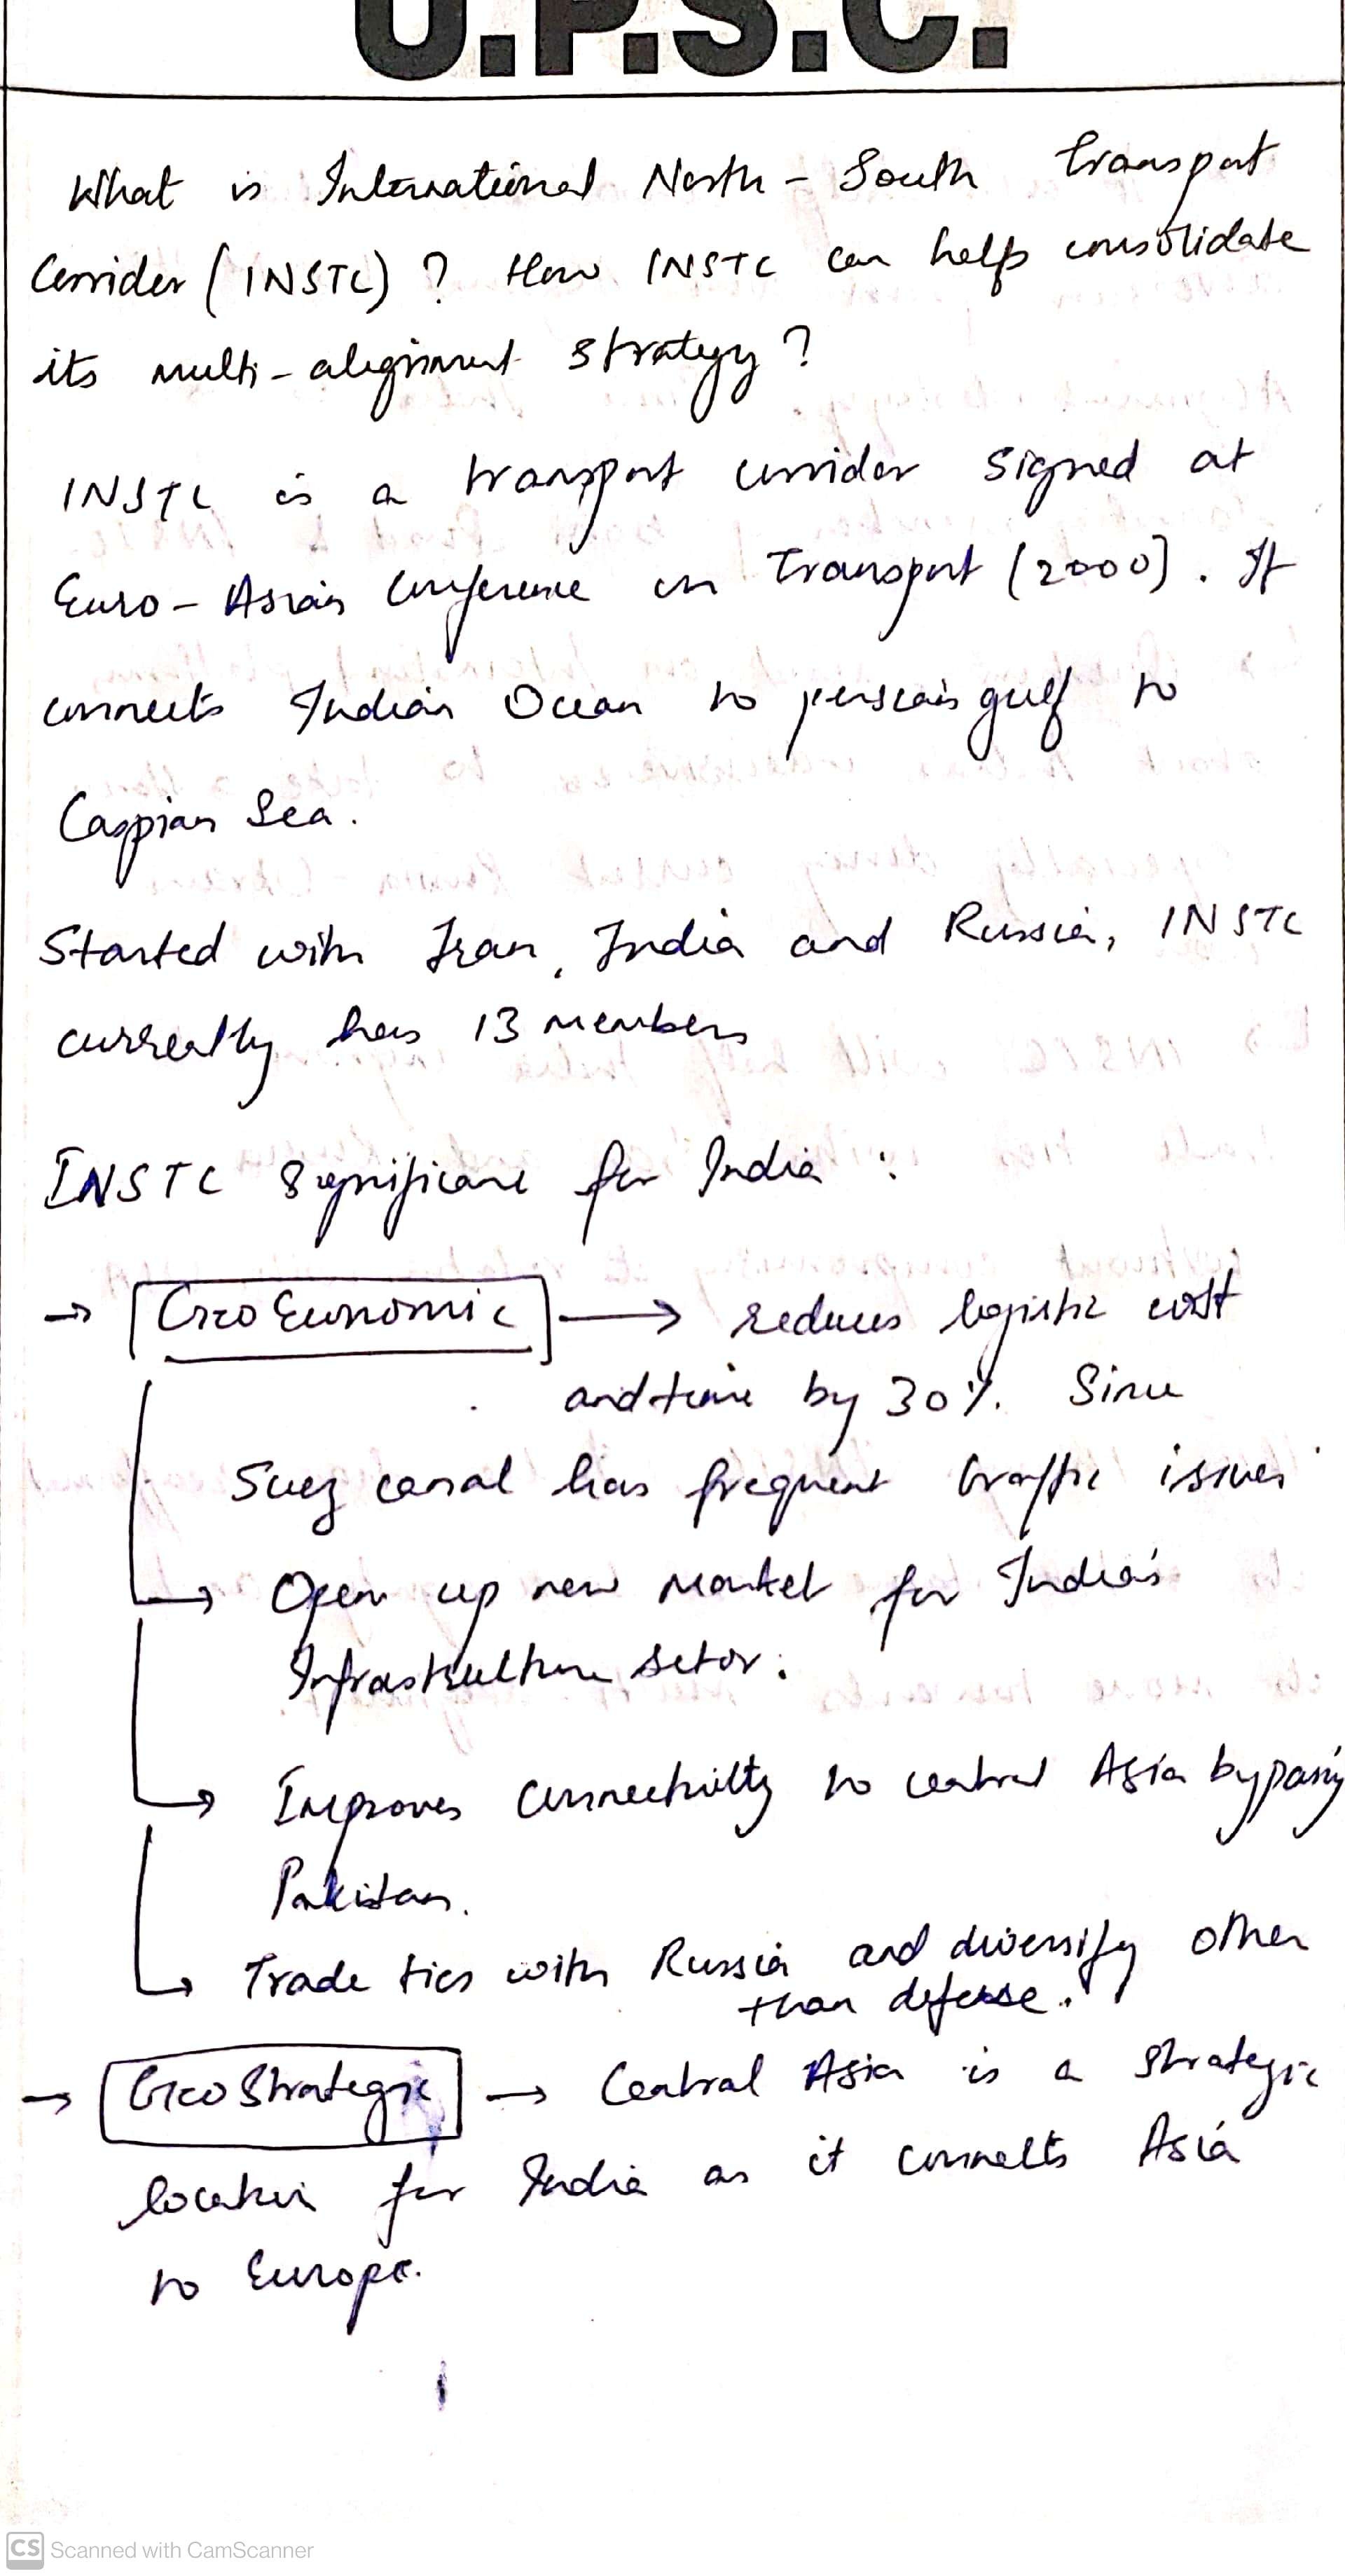 U.P.S.C.
What is International North - South transport
Corridor (INSTC) ? How INSTC can help consolidate
its multi-alignment strategy ?
INSTC is a transport corridor signed at
Euro-Asian Conference on Transport (2000). It
connects Indian Ocean to persian gulf to
Caspian Sea.
Started with Iran, India and Russia, INSTC
currently has 13 members
INSTC Significance for India :
→ Geo Economic → reduces logistic cost
and time by 30%. Since
Suez canal has frequent traffic issues
→ Open up new market for India's
Infrastructure sector.
→ Improves connectivity to central Asia bypassing
Pakistan.
→ Trade ties with Russia and diversify other
than defense.
→ Geo Strategic → Central Asia is a strategic
location for India as it connects Asia
to Europe.
CS Scanned with CamScanner